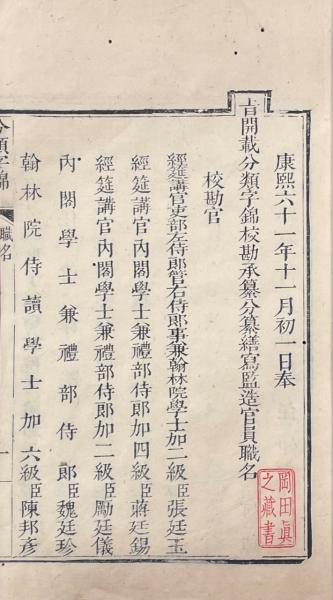 康熙六十一年十一月初一日奉
旨開載分類字錦校勘承纂分纂繕寫監造官員職名
校勘官
經筵講官吏部左侍郎管右侍郎事兼翰林院學士加二級臣張廷玉
經筵講官內閣學士兼禮部侍郎加四級臣蔣廷錫
經筵講官內閣學士兼禮部侍郎加二級臣勵廷儀
內閣學士兼禮部侍郎臣魏廷珍
翰林院侍讀學士加六級臣陳邦彥
分類字錦
職名
一
岡田真
之藏書